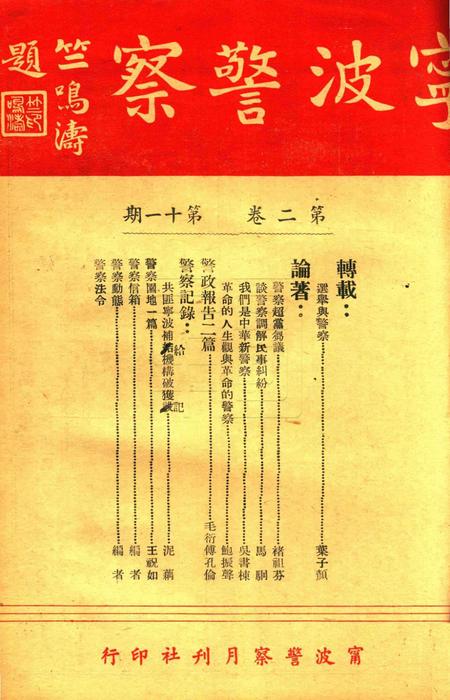 寧波警察
竺鳴濤
題
第二卷 第十一期
轉載：
選舉與警察 葉子顏
論著：
警察超黨芻議 褚祖芬
談警察調解民事糾紛 馬駉
我們是中華新警察 吳書棟
革命的人生觀與革命的警察 鮑振聲
警政報告二篇 毛衍 傅孔倫
警察記錄：
共匪寧波補給機構破獲記 泥藕
警察園地一篇 王祝如
警察信箱 編者
警察動態 編者
警察法令
甯波警察月刊社印行